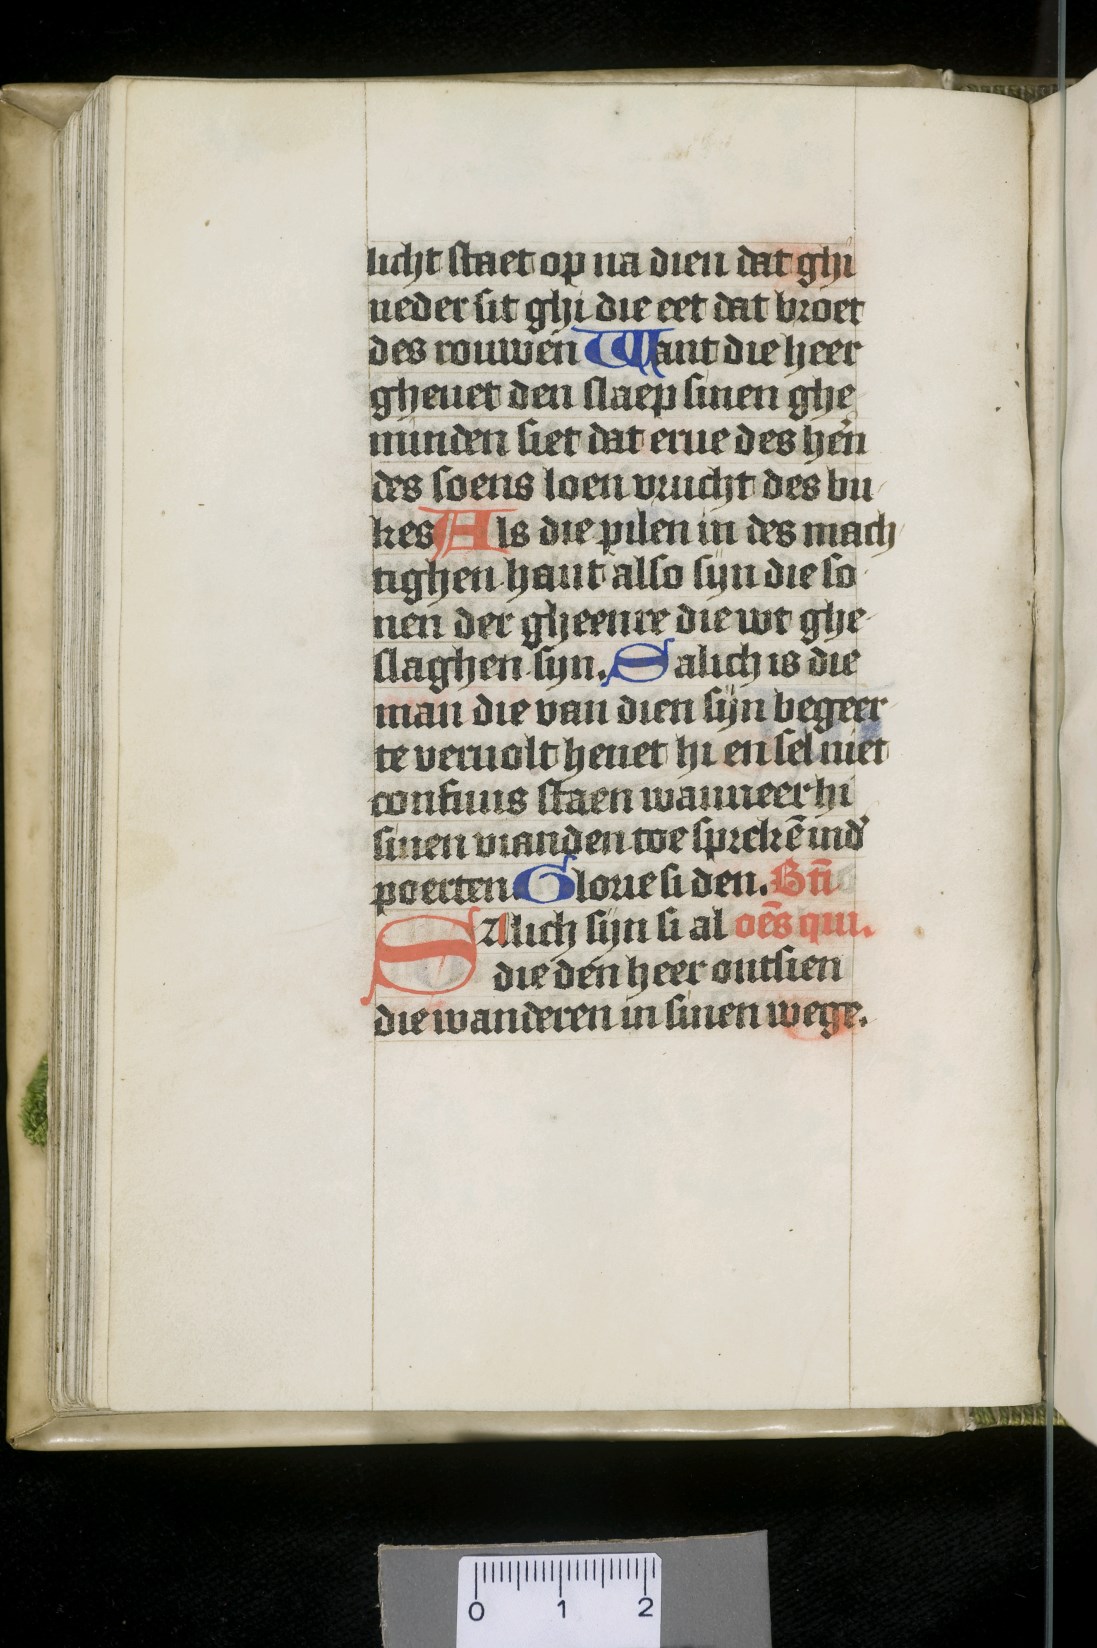 licht staet op na dien dat ghi
neder sit ghi die eet dat broet
des rouwen Want die heer
gheuet den slaep sinen ghe
minden siet dat erue des heñ
des soens loen vrucht des bu
kes Als die pilen in des mach
tighen hant also sijn die so
nen der gheenre die wt ghe
slaghen sijn. Salich is die
man die van dien sijn begeer
te veruolt heuet hi en sel niet
confuus staen wanneer hi
sinen vianden toe sprekē ind'
poerten Glorie si den. Bt̄i
Salich sijn si al oēs qui.
die den heer ontsien
die wanderen in sinen wege.
0 1 2